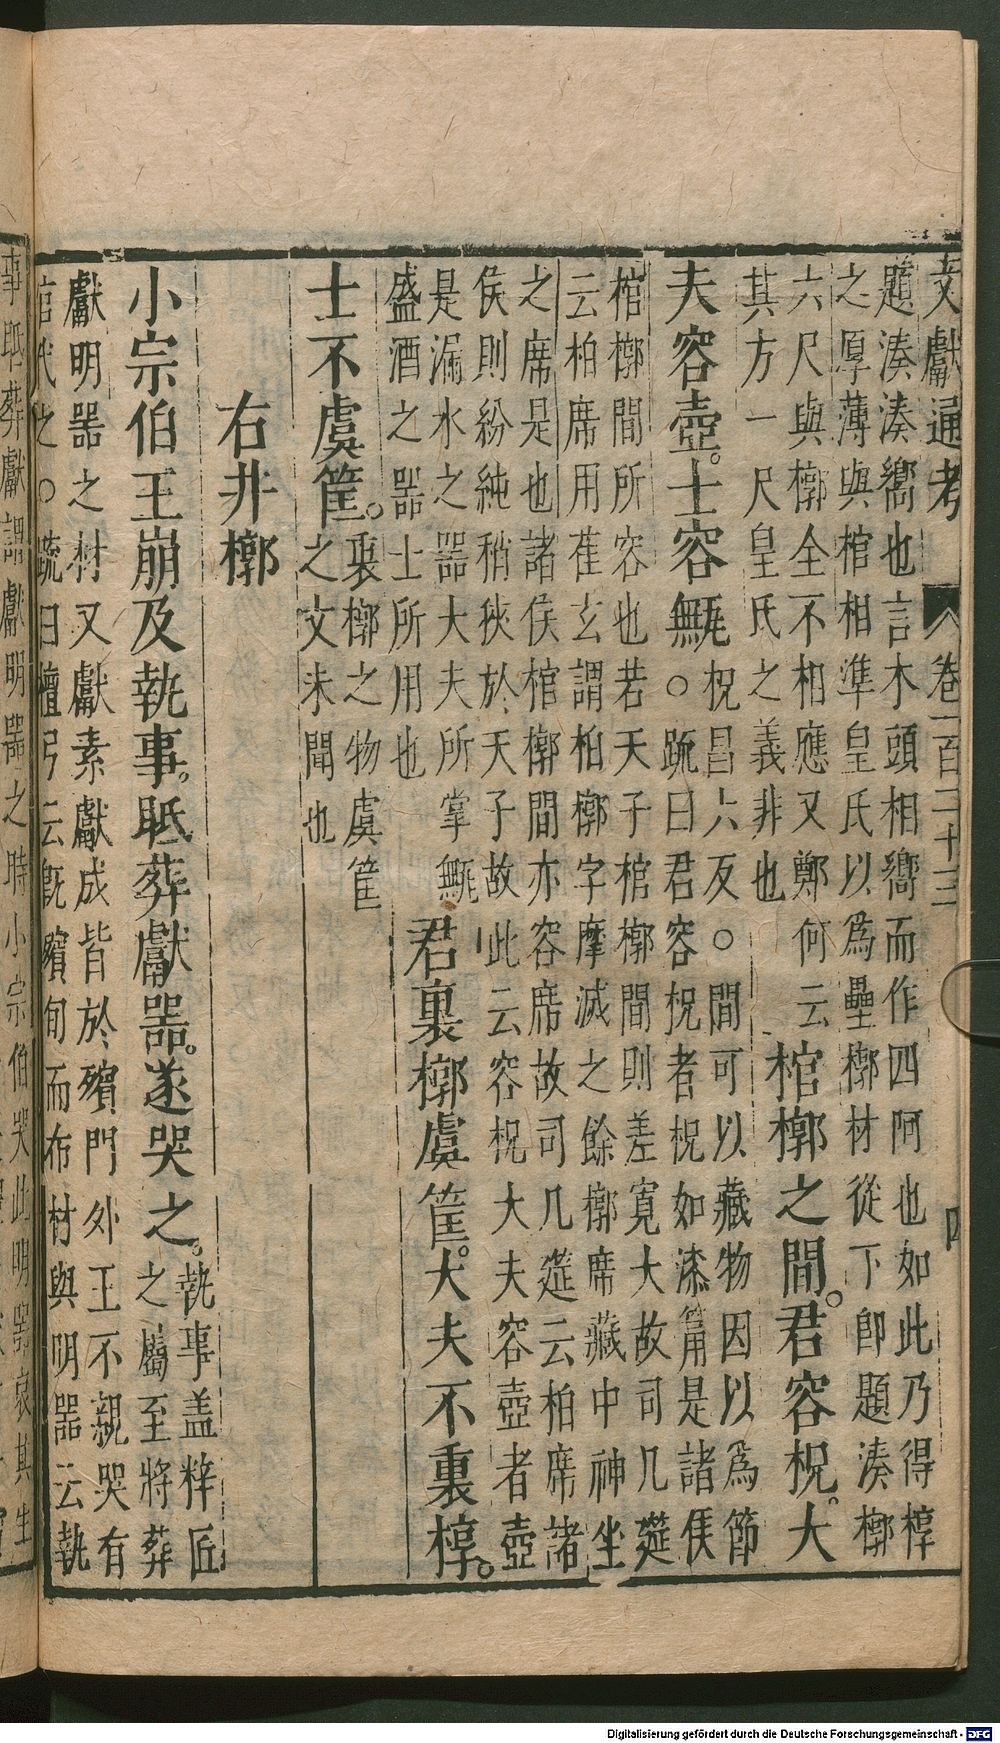 文獻通考 卷一百二十三 四
題湊湊嚮也言木頭相嚮而作四阿也如此乃得椁
之厚薄與棺相準皇氏以爲壘槨材從下卽題湊槨
六尺與槨全不相應又鄭何云
其方一尺皇氏之義非也
棺槨之間。君容柷。大
夫容壺。士容甒。
柷昌六反○間可以藏物因以爲節
○疏曰君容柷者柷如漆筩是諸侯
棺槨間所容也若天子棺槨間則差寬大故司几筵
云柏席用萑玄謂柏槨字摩滅之餘槨席藏中神坐
之席是也諸侯棺槨間亦容席故司几筵云柏席諸
侯則紛純稍狹於天子故此云容柷大夫容壺者壺
是漏水之器大夫所掌甒
盛酒之器士所用也
君裏槨虞筐。大夫不裏椁。
士不虞筐。
裏槨之物虞筐
之文未聞也
右井槨
小宗伯王崩及執事。眡葬獻器。遂哭之。
執事盖梓匠
之屬至將葬
獻明器之材又獻素獻成皆於殯門外王不親哭有
官代之○疏曰檀弓云旣殯旬而布材與明器云執
事眡葬獻謂獻明器之時小宗伯哭此明器哀其生
Digitalisierung gefördert durch die Deutsche Forschungsgemeinschaft - DFG